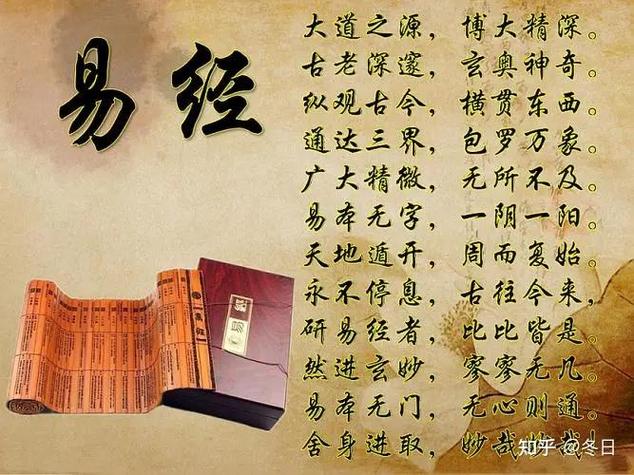 易经
大道之源，博大精深。
古老深邃，玄奥神奇。
纵观古今，横贯东西。
通达三界，包罗万象。
广大精微，无所不及。
易本无字，一阴一阳。
天地遁开，周而复始。
永不停息，古往今来，
研易经者，比比皆是。
然进玄妙，寥寥无几。
易本无门，无心则通。
舍身进取，妙哉 哉！
知乎 @冬日